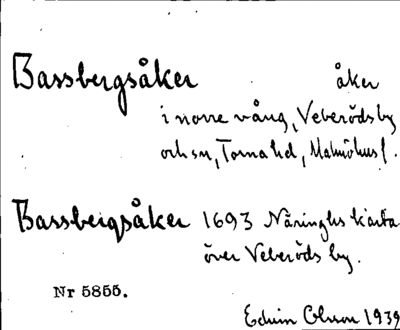 Bassbergsåker åker
i norre vång, Veberöds by
och sn, Torna hd, Malmöhus l.
Bassbergsåker 1693 Näringhs karta
över Veberöds by.
Nr 5855.
Edwin Ohlsson 1939